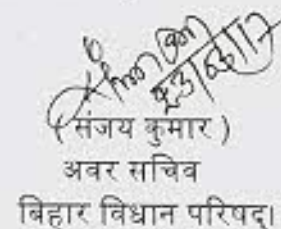 ( संजय कुमार )
अवर सचिव
बिहार विधान परिषद्।